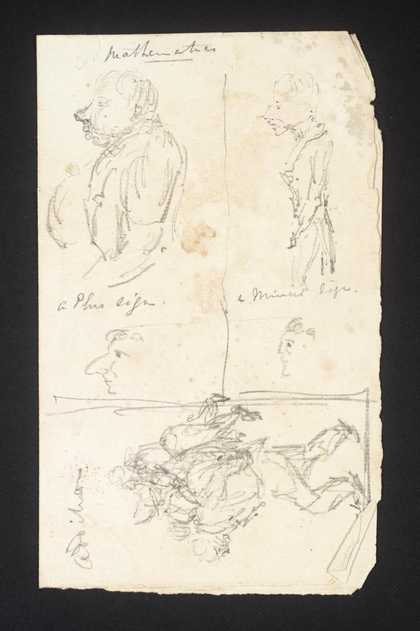 Mathematics
a Plus Sign.
a Minus Sign.